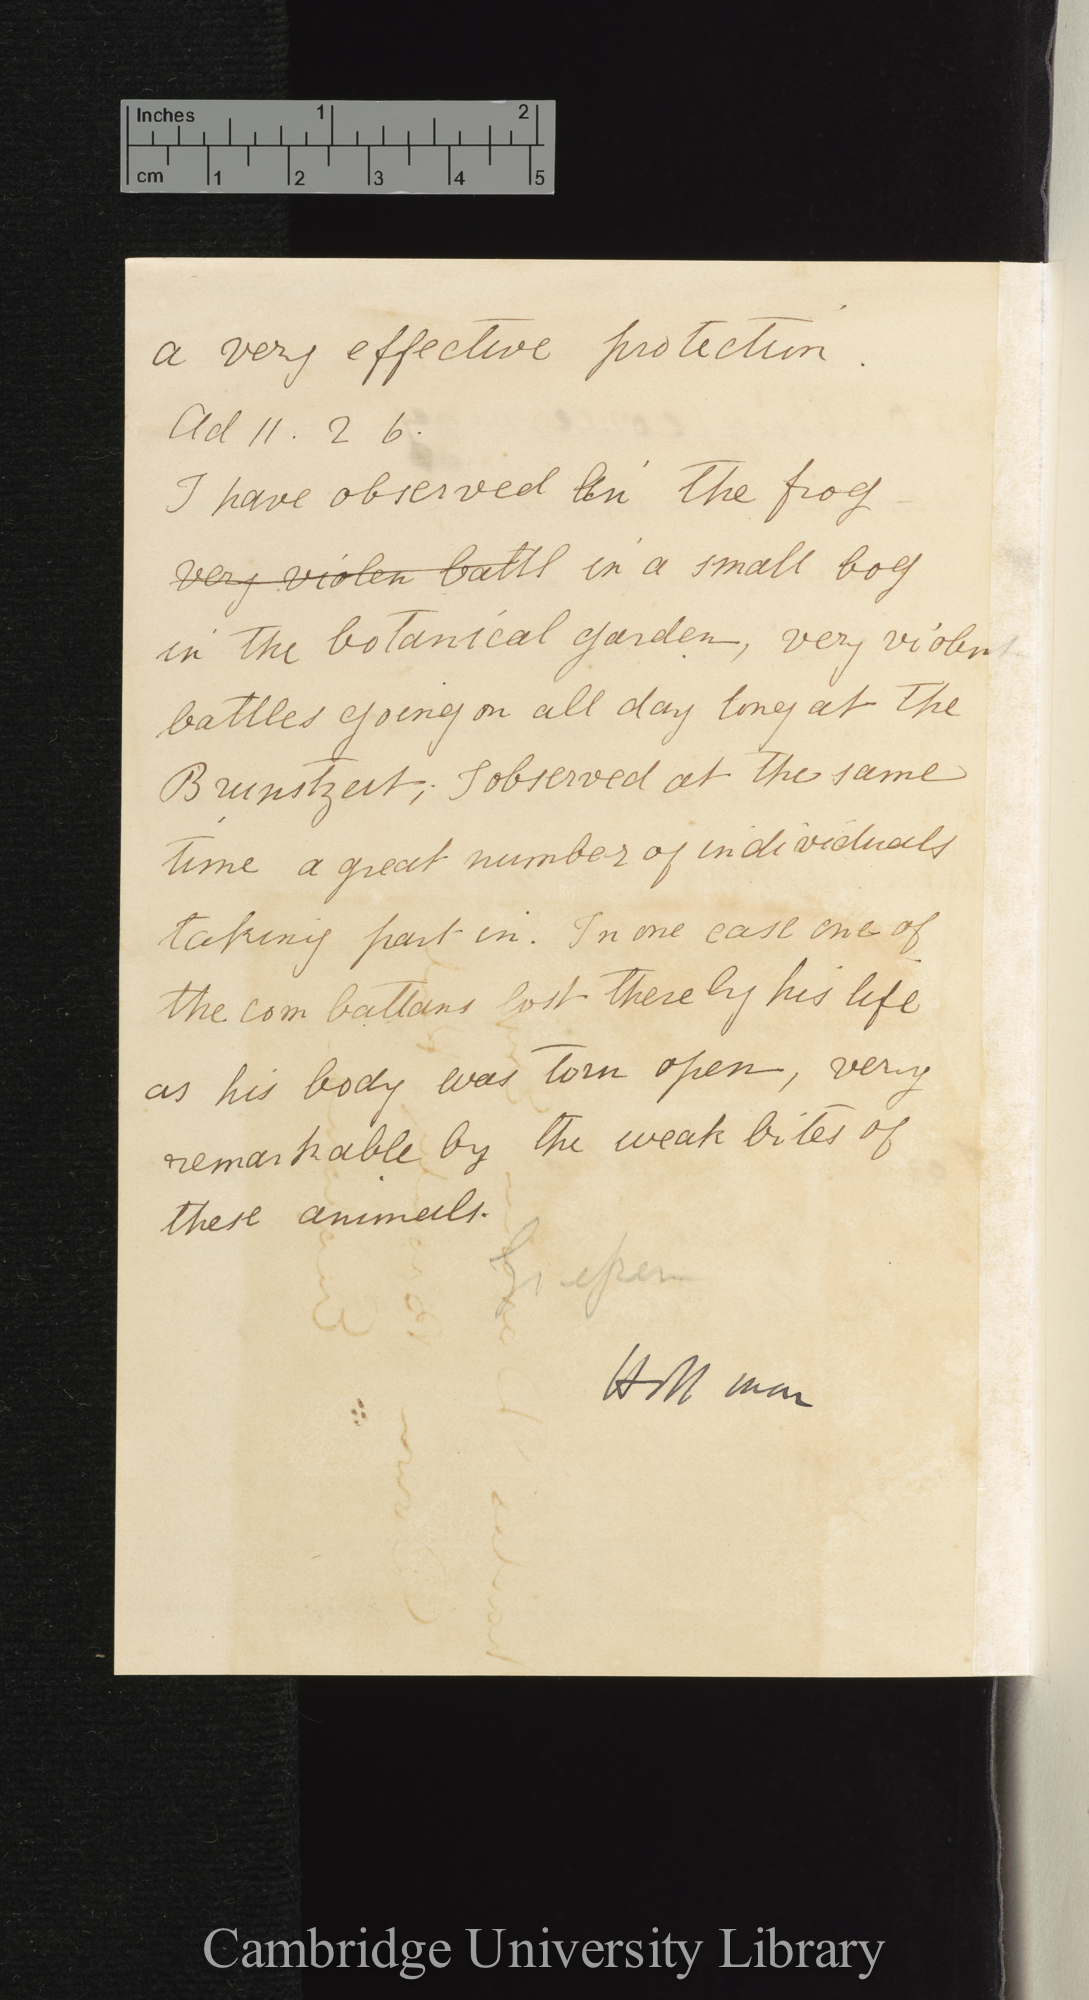 Inches 1 2
cm 1 2 3 4 5
a very effective protection.
Ad 11. 2 6.
I have observed in the frog
very violen battl in a small bog
in the botanical garden, very violent
battles going on all day long at the
Brunstzeit; I observed at the same
time a great number of individuals
taking part in. In one case one of
the combattans lost thereby his life
as his body was torn open, very
remarkable by the weak bites of
these animals.
Cambridge University Library